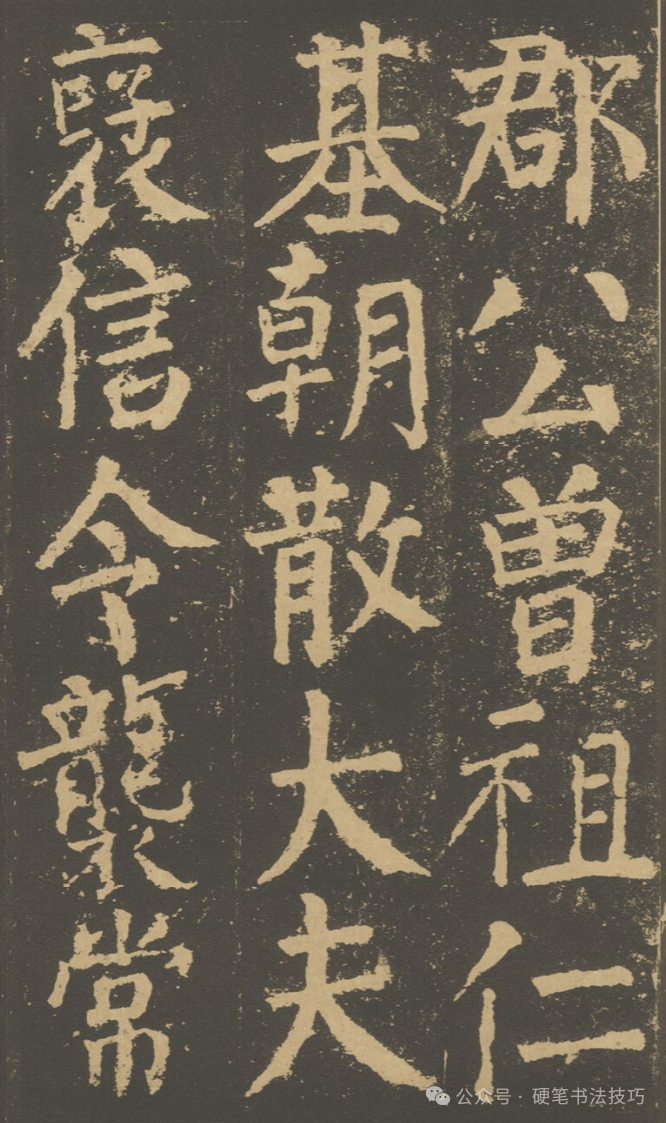 郡公曾祖仁
基朝散大夫
褒信令襲常
公众号 · 硬笔书法技巧